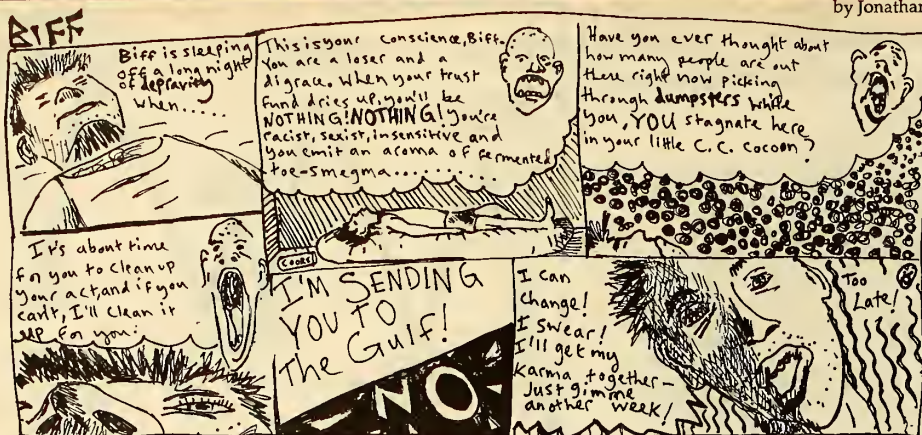 BIFF
by Jonathan
Biff is sleeping
off a long night
of depravity
when....
This is your conscience, Biff.
You are a loser and a
digrace. When your trust
fund dries up, you'll be
NOTHING! NOTHING! You're
racist, sexist, insensitive and
you emit an aroma of fermented
toe-smegma..........
COORS
Have you ever thought about
how many people are out
there right now picking
through dumpsters while
you, YOU stagnate here
in your little C.C. cocoon?
It's about time
for you to clean up
your act, and if you
can't, I'll clean it
up for you.
I'M SENDING
YOU TO
The Gulf!
NO
I can
change!
I swear!
I'll get my
karma together-
Just gimme
another week!
Too
Late!